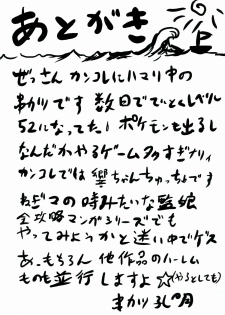 あとがき 上
ぜっさん カンコレにハマリ中の
まかりです 数日でていとくレベル
52になってた！ ポケモンも出るし
なんだわやるゲームタタすぎナリィ
カンコレでは 響ちゃんちゅっちょです
ネギマの時みたいな監娘
全攻略マンガシリーズでも
やってみようかと迷い中でゲス
あ、もちろん 他作品のハーレム
ものも並行しますよ☆(やるとしても)
まかり